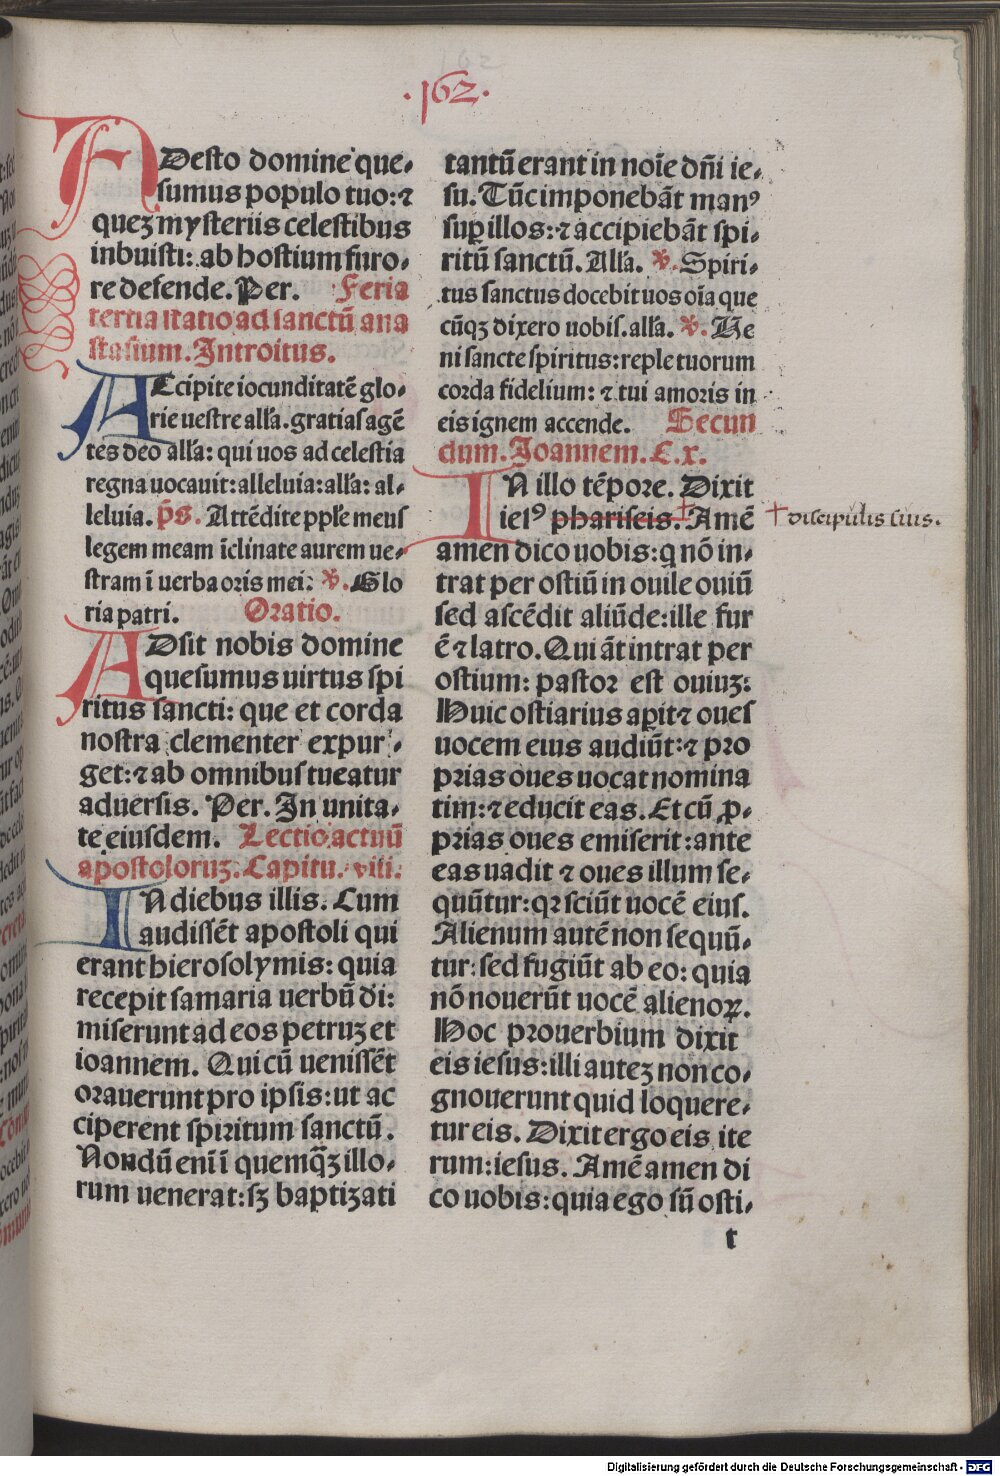 .162.
ADesto domine que-
sumus populo tuo: ⁊
queʒ mysteriis celestibus
inbuisti: ab hostium furo-
re defende. Per. Feria
tertia statio ad sanctū ana
stasium. Introitus.
ACcipite iocunditatē glo-
rie uestre alla. gratias agē
tes deo alla: qui uos ad celestia
regna uocauit: alleluia: alla: al-
leluia. ps. Attēdite pple meus
legem meam īclinate aurem ue-
stram ī uerba oris mei: ℣. Glo
ria patri. Oratio.
ADsit nobis domine
quesumus uirtus spi
ritus sancti: que et corda
nostra clementer expur-
get: ⁊ ab omnibus tueatur
aduersis. Per. In unita-
te eiusdem. Lectio actuū
apostoloruʒ. Capitu. viii.
IN diebus illis. Cum
audissēt apostoli qui
erant hierosolymis: quia
recepit samaria uerbū di:
miserunt ad eos petruʒ et
ioannem. Qui cū uenissēt
orauerunt pro ipsis: ut ac
ciperent spiritum sanctū.
Nondū enī ī quemq̄ʒ illo-
rum uenerat: sʒ baptiʒati
tantū erant in noīe dn̄i ie-
su. Tūc imponebāt manꝰ
suꝑ illos: ⁊ accipiebāt spi-
ritū sanctū. Alla. ℣. Spiri-
tus sanctus docebit uos oīa que
cūqʒ dixero uobis. alla. ℣. Ue
ni sancte spiritus: reple tuorum
corda fidelium: ⁊ tui amoris in
eis ignem accende. Secun
dum. Joannem. C. x.
IN illo tēpore. Dixit
iesꝰ phariseis. Amē
+ discipulis suis.
amen dico uobis: q nō in-
trat per ostiū in ouile ouiū
sed ascēdit aliūde: ille fur
ē ⁊ latro. Qui āt intrat per
ostium: pastor est ouiuʒ:
Huic ostiarius aꝑit ⁊ oues
uocem eius audiūt: ⁊ pro
prias oues uocat nomina
tim: ⁊ educit eas. Et cū ꝓ-
prias oues emiserit: ante
eas uadit ⁊ oues illum se-
quūtur: qꝛ sciūt uocē eius.
Alienum autē non sequū-
tur: sed fugiūt ab eo: quia
nō nouerūt uocē alienoꝝ.
Hoc prouerbium dixit
eis iesus: illi auteʒ non co-
gnouerunt quid loquere-
tur eis. Dixit ergo eis ite
rum: iesus. Amē amen di
co uobis: quia ego sū osti-
t
Digitalisierung gefördert durch die Deutsche Forschungsgemeinschaft - DFG